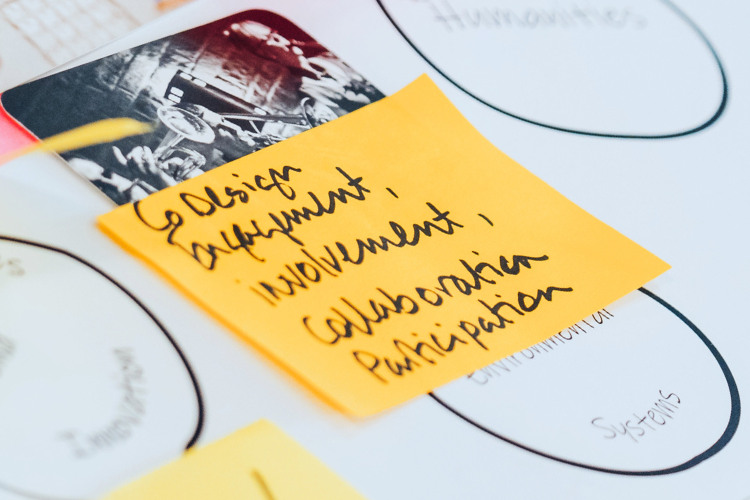 Humanities
CoDesign
Engagement,
involvement,
Collaboration
Participation
Environmental
Systems
Innovation